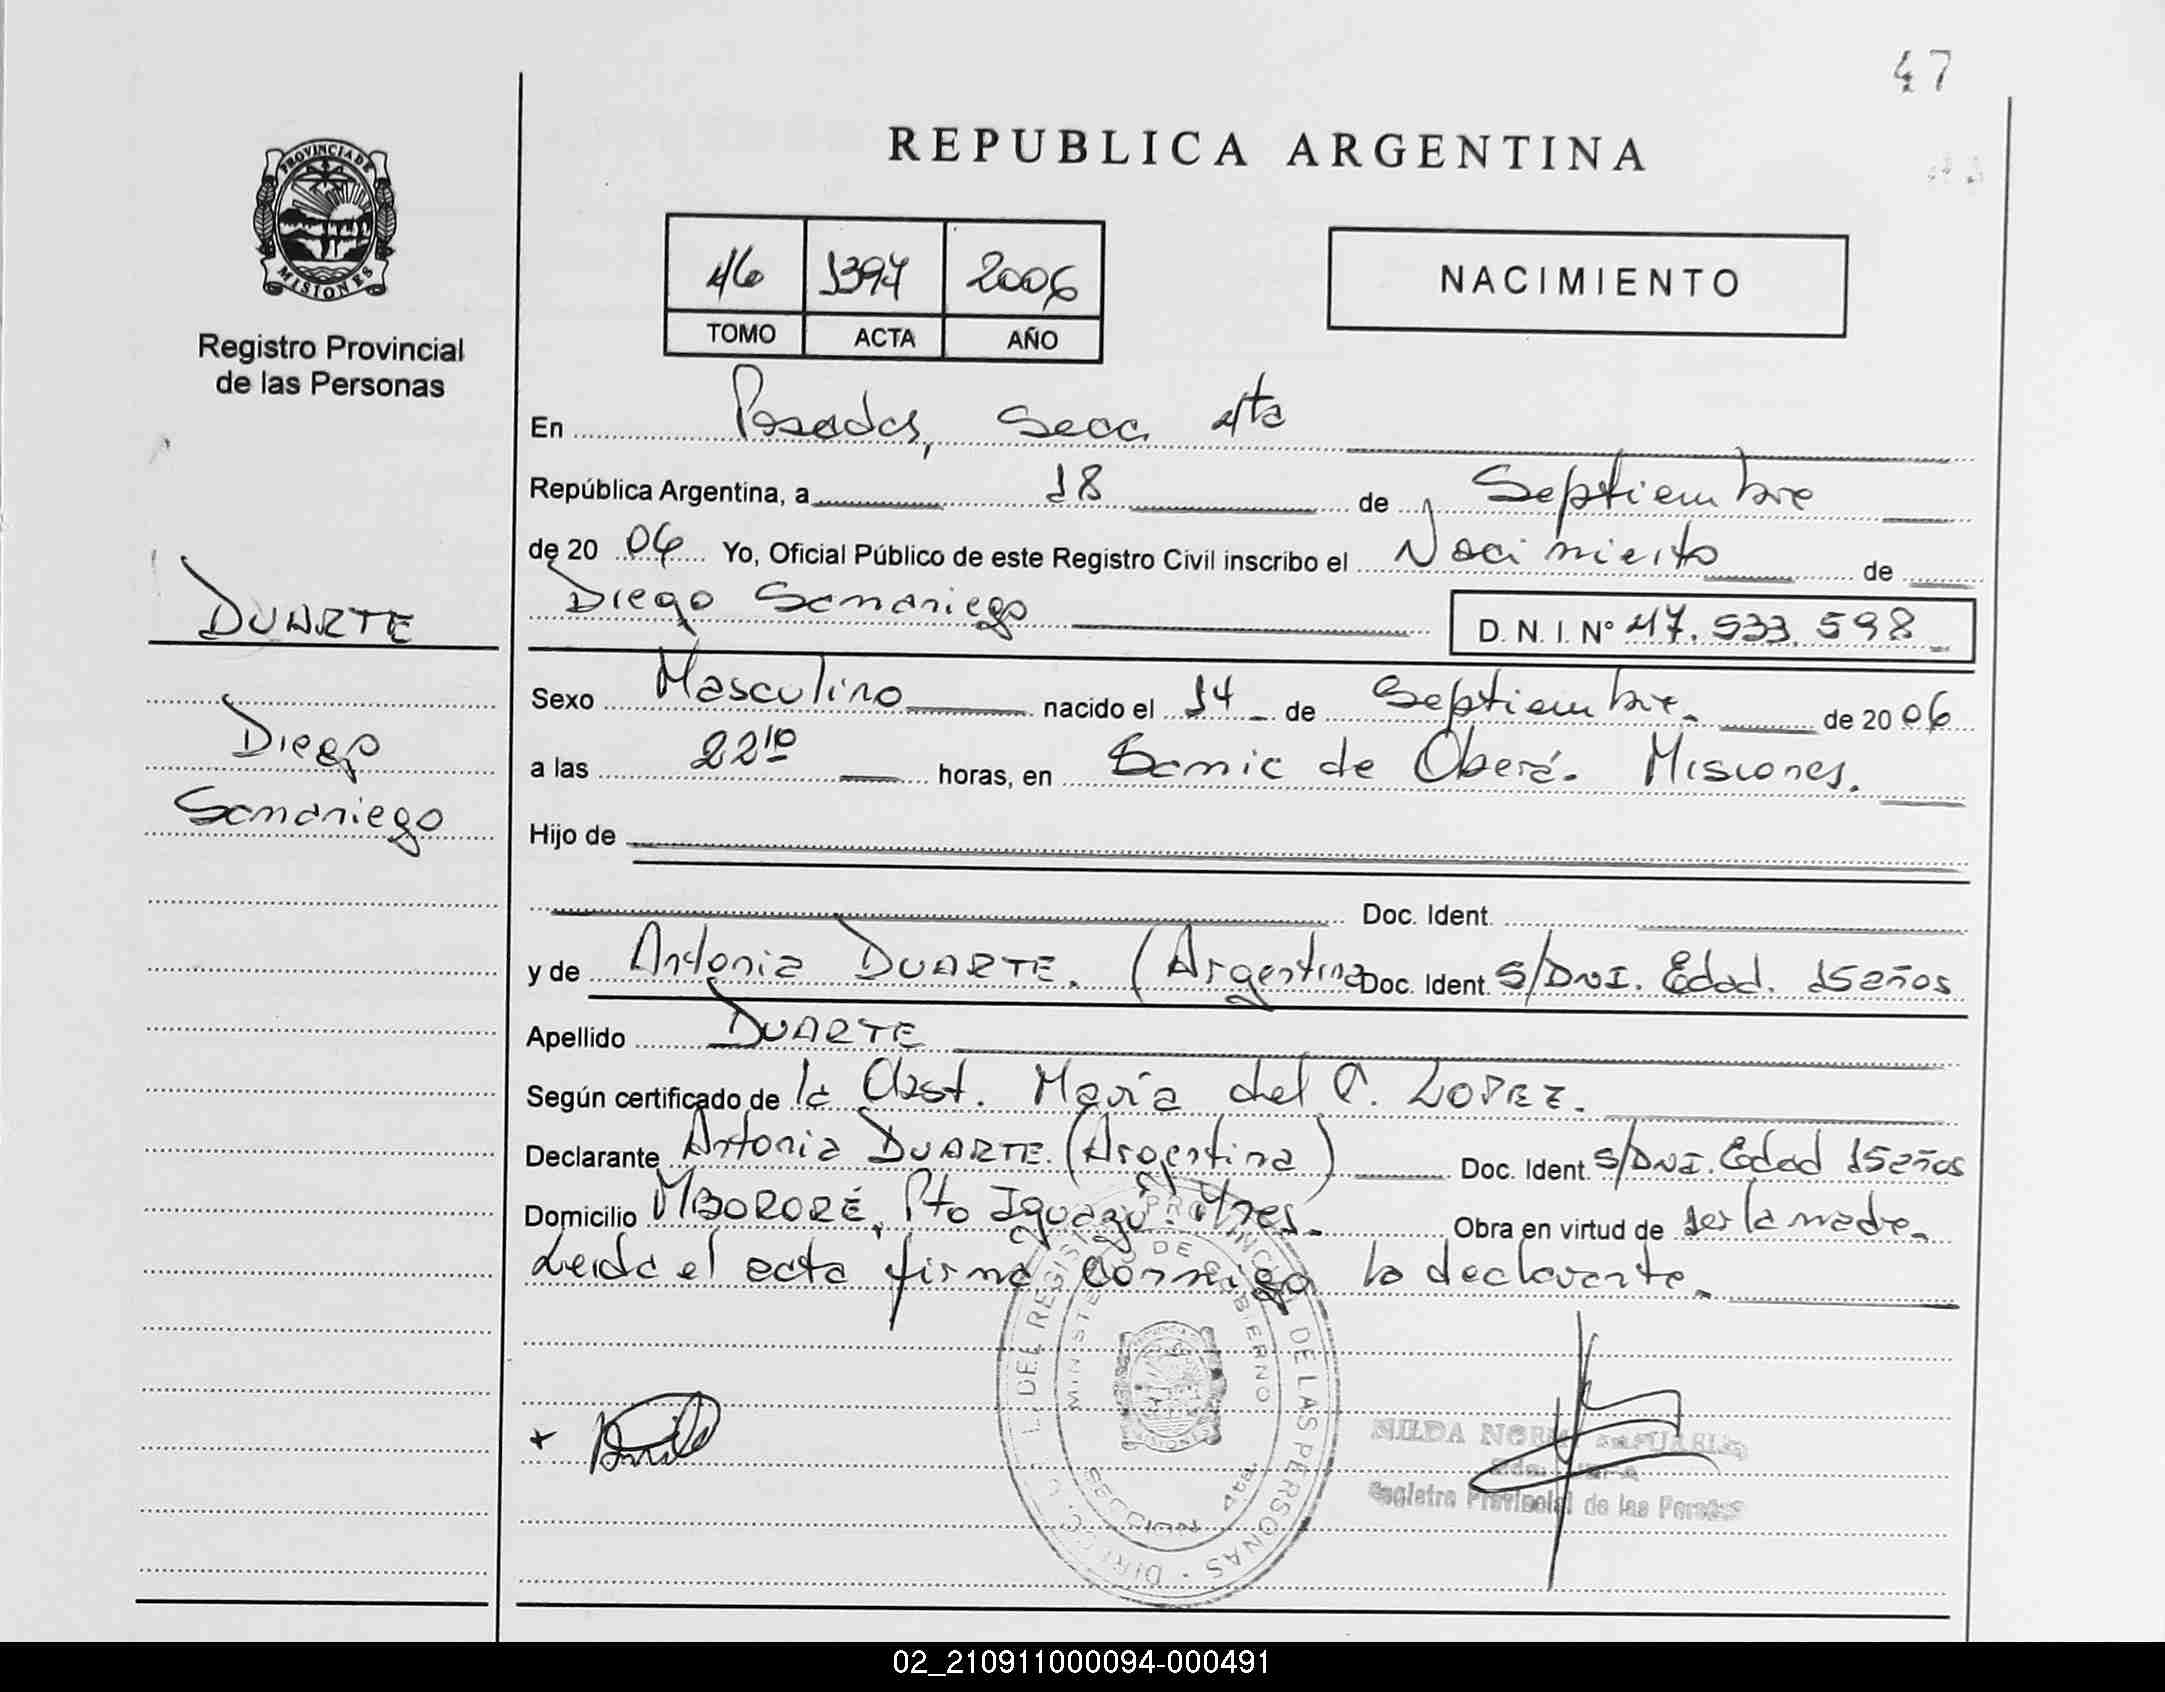 47
REPUBLICA ARGENTINA
PROVINCIA DE
MISIONES
Registro Provincial
de las Personas
46 1397 2006
TOMO ACTA AÑO
NACIMIENTO
En Posadas, Secc. 4ta
República Argentina, a 18 de Septiembre
de 2006 Yo, Oficial Público de este Registro Civil inscribo el Nacimiento de
DUARTE
Diego Samaniego D. N. I. Nº 47.533.598
Sexo Masculino nacido el 14 de Septiembre. de 2006
Diego
a las 22 10 horas, en Samic de Oberá. Misiones.
Samaniego
Hijo de
Doc. Ident.
y de Antonia DUARTE. (Argentina Doc. Ident. S/DNI. Edad. 15 años
Apellido DUARTE
Según certificado de la Obst. María del C. LOPEZ.
Declarante Antonia DUARTE. (Argentina) Doc. Ident. S/DNI. Edad 15 años
Domicilio MBORORÉ, Pto Iguazú. Mnes. Obra en virtud de ser la madre.
Leida el acta firma conmigo la declarante.
DEL REGISTRO PROVINCIAL DE LAS PERSONAS
MINISTERIO DE GOBIERNO
SECCION 4ta.
Registro Provincial de las Personas
02_210911000094-000491